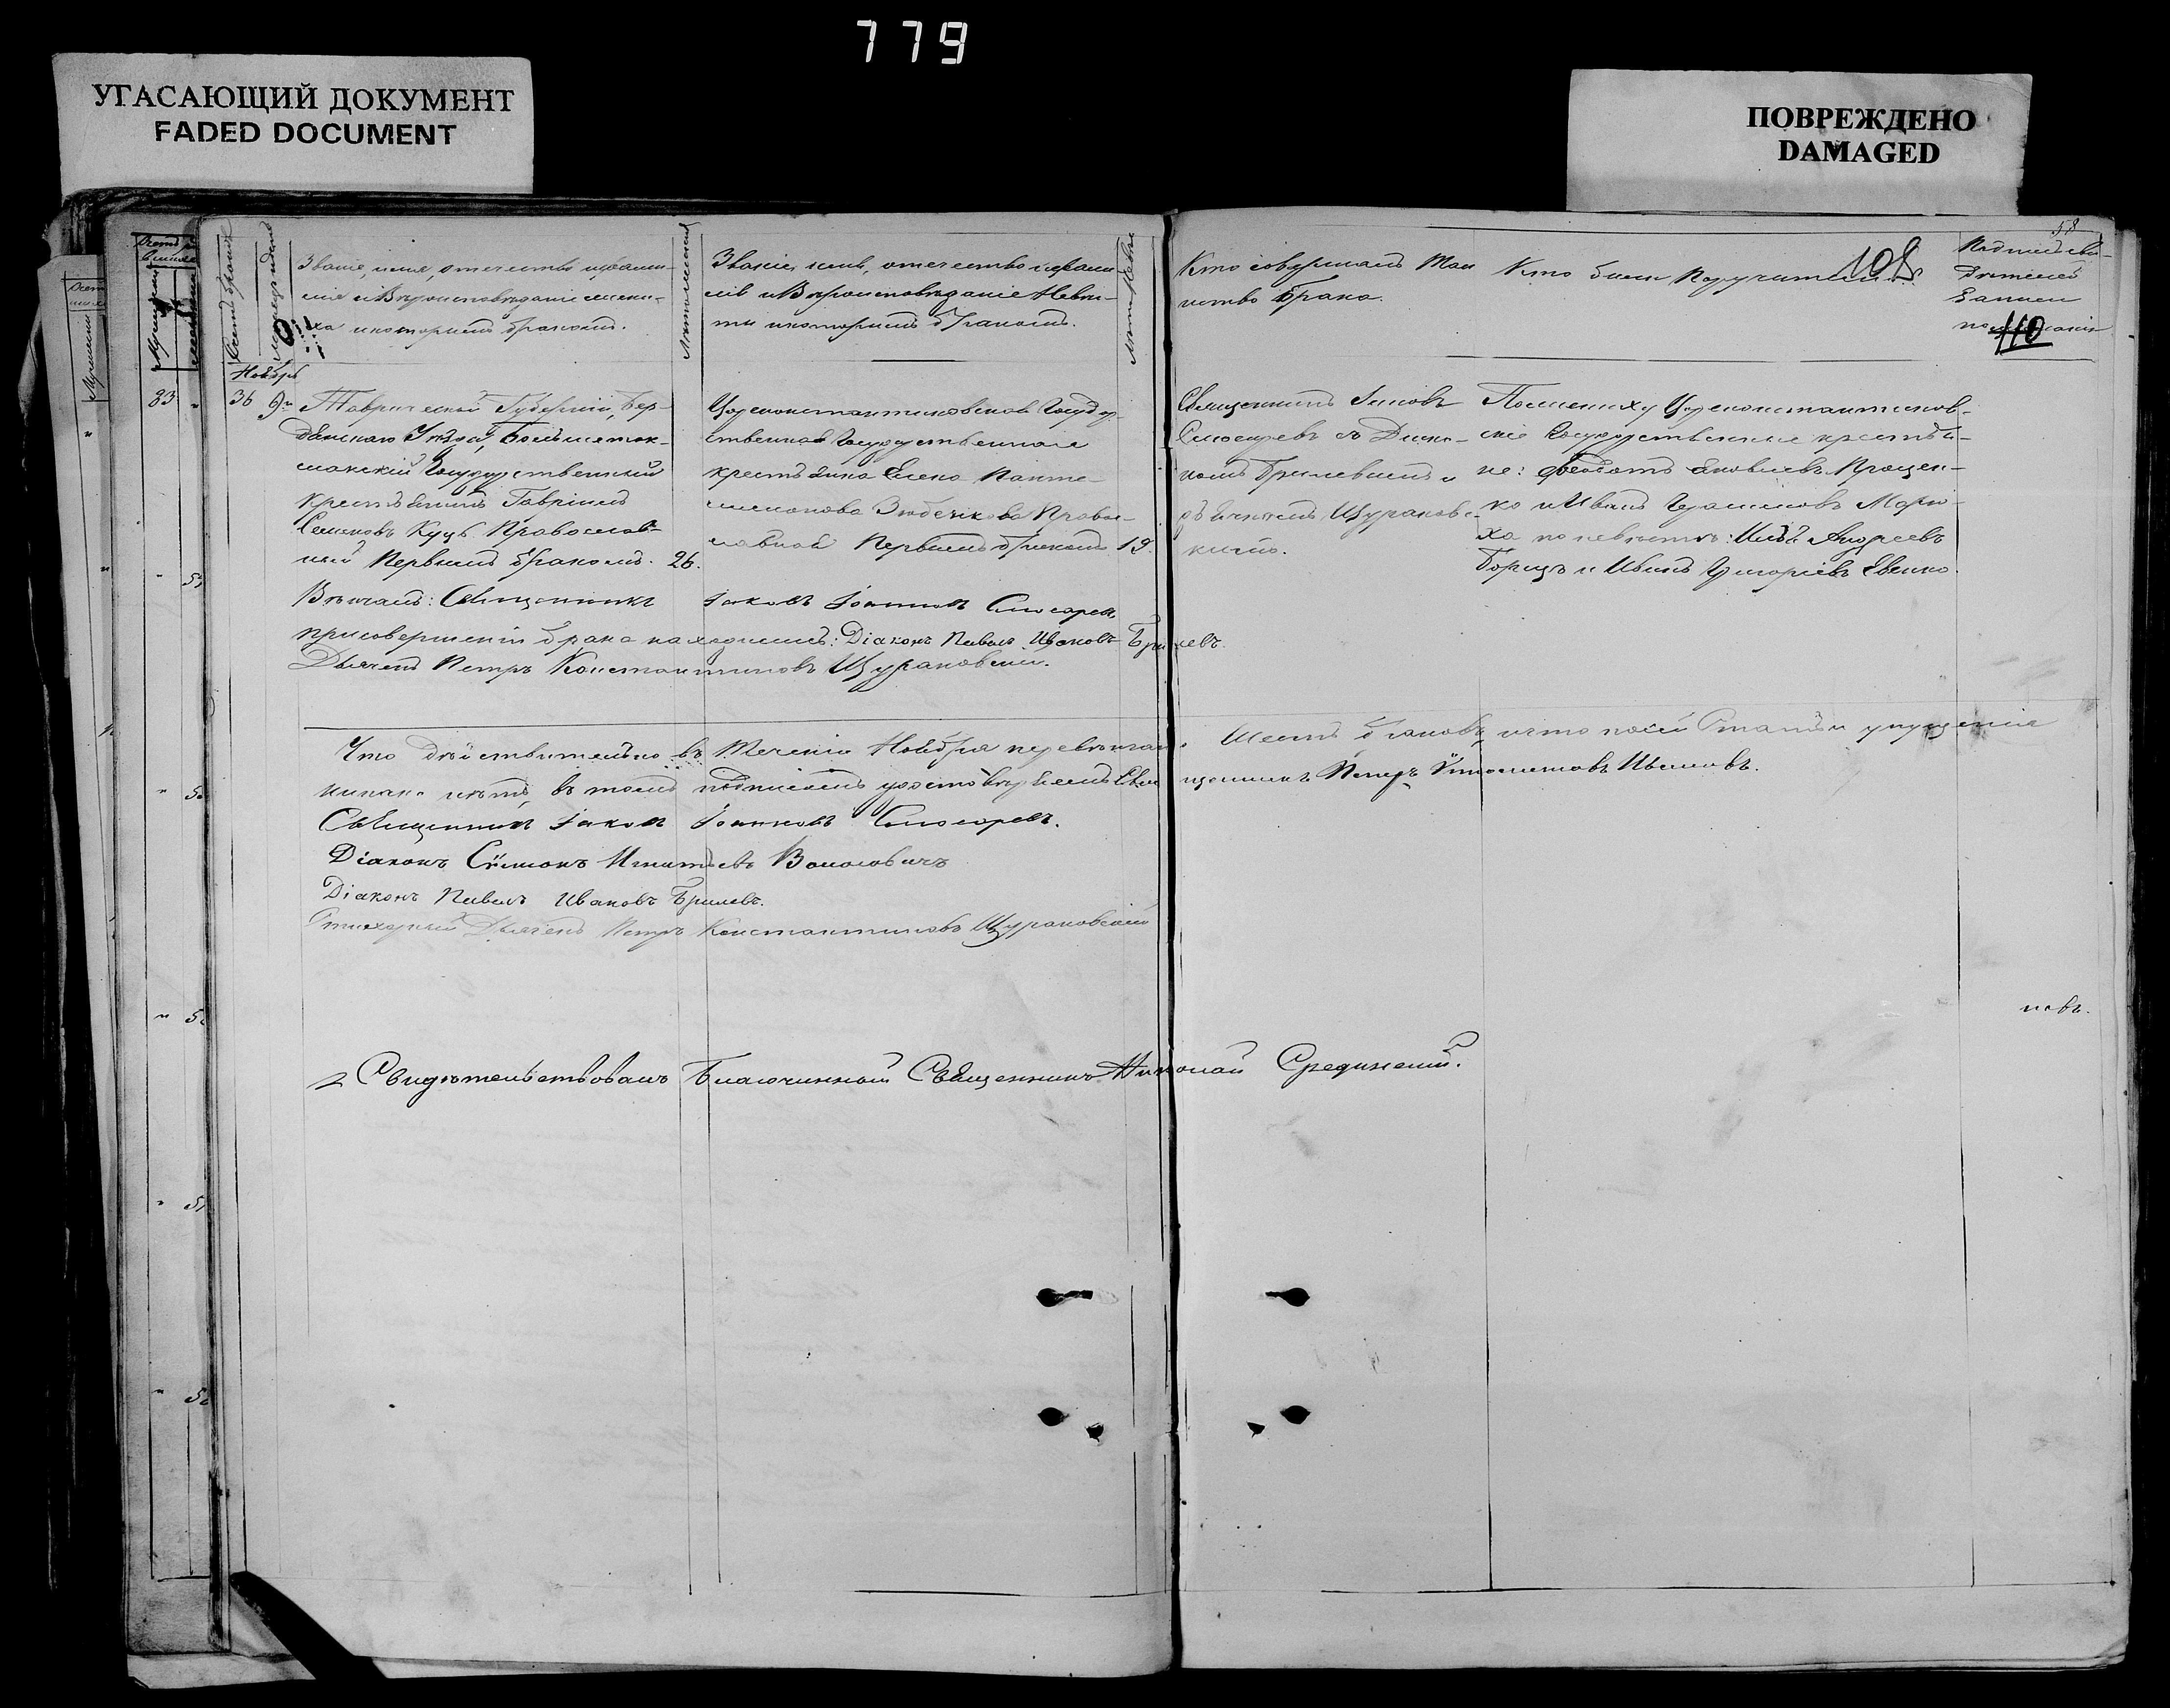 779
УГАСАЮЩИЙ ДОКУМЕНТ
FADED DOCUMENT
ПОВРЕЖДЕНО
DAMAGED
58
109
110
Званіе, имя, отечество и фами-
лія и Вѣроисповѣданіе жени-
ха и которымъ бракомъ.
Званіе, имя, отечество и фами
лія и Вѣроисповѣданіе Невѣ-
сты и которымъ бракомъ.
Кто совершалъ Таи
нство брака.
Кто были Поручители
Ноябрь
36 9
Таврической Губерніи, Бер-
дянскаго Уѣзда,
Государственный
крестьянинъ Гавріилъ
Семеновъ Куцъ Православ-
ный Первымъ бракомъ. 26.
Цареконстантиновская Государ-
ственная
крестьянка Елена Панте-
леимонова Зюбенкова Право-
славной Первымъ бракомъ 19.
Священникъ Іаковъ
Слюсаревъ съ Діако-
номъ Брилевымъ и
дьячкомъ Щурановс-
кимъ.
По жениху Цареконстантинов-
скіе Государственные крестья-
не: Феодотъ Яковлевъ Процен-
ко и Иванъ Герасимовъ
по невѣстѣ: Илья Андреевъ
и Иванъ Григоріевъ Евенко.
Вѣнчалъ: Священникъ Іаковъ Іоанновъ Слюсаревъ
при совершеніи брака находились: Діаконъ Павелъ Ивановъ Брилевъ.
Дьячекъ Петръ Константиновъ Щурановскій.
Что дѣйствительно въ Теченіи Ноября перевѣнчано Шесть браковъ, и что по сей Статьи упущенія
никако нѣтъ, въ томъ подписомъ удостовѣряемъ Священникъ Петръ Ивановъ.
Священникъ Іаковъ Іоанновъ Слюсаревъ.
Діаконъ Сѵмеонъ Игнатьевъ Волосовичъ
Діаконъ Павелъ Ивановъ Брилевъ.
Стихарный Дьячекъ Петръ Константиновъ Щурановскій
новъ.
Свидѣтельствовалъ Благочинный Священникъ Николай Срединскій.